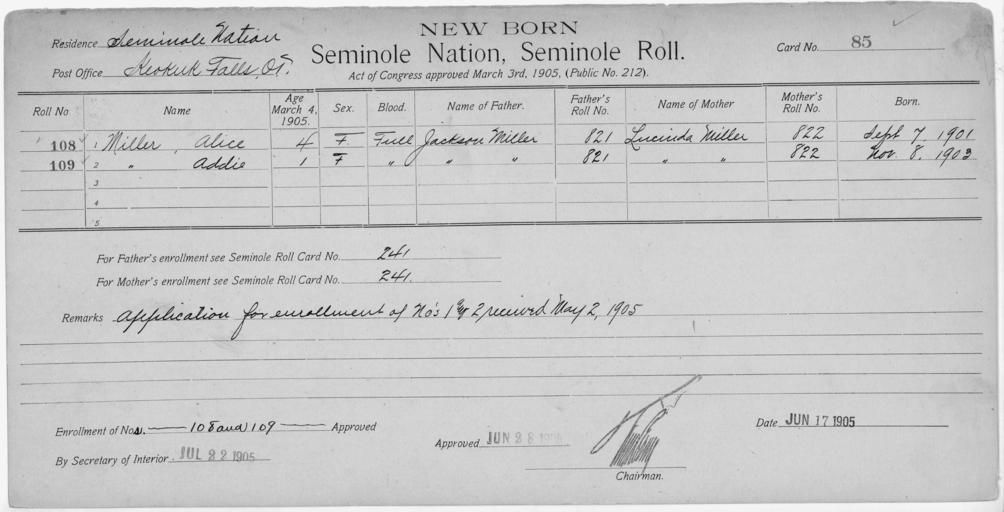 NEW BORN
Residence Seminole Nation
Seminole Nation, Seminole Roll.
Card No. 85
Post Office Keokuk Falls, O.T.
Act of Congress approved March 3rd, 1905, (Public No. 212).
Roll No Name Age March 4, 1905. Sex. Blood. Name of Father. Father's Roll No. Name of Mother Mother's Roll No. Born.
108 1 Miller Alice 4 F Full Jackson Miller 821 Lucinda Miller 822 Sept 7, 1901
109 2 " Addie 1 F " " " 821 " " 822 Nov. 8. 1903
3
4
5
For Father's enrollment see Seminole Roll Card No. 241
For Mother's enrollment see Seminole Roll Card No. 241.
Remarks Application for enrollment of No's 1 & 2 received May 2, 1905
Enrollment of Nos. 108 and 109 Approved
Approved JUN 28 1905
Date JUN 17 1905
By Secretary of Interior. JUL 22 1905
Chairman.